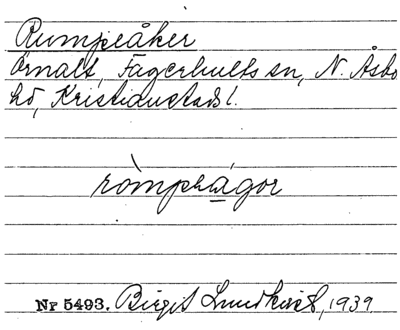 Rumpeåker
Örnalt, Fagerhults sn, N. Åsbo
hd, Kristianstads l.
Nr 5493. Birgit Lundkvist, 1939